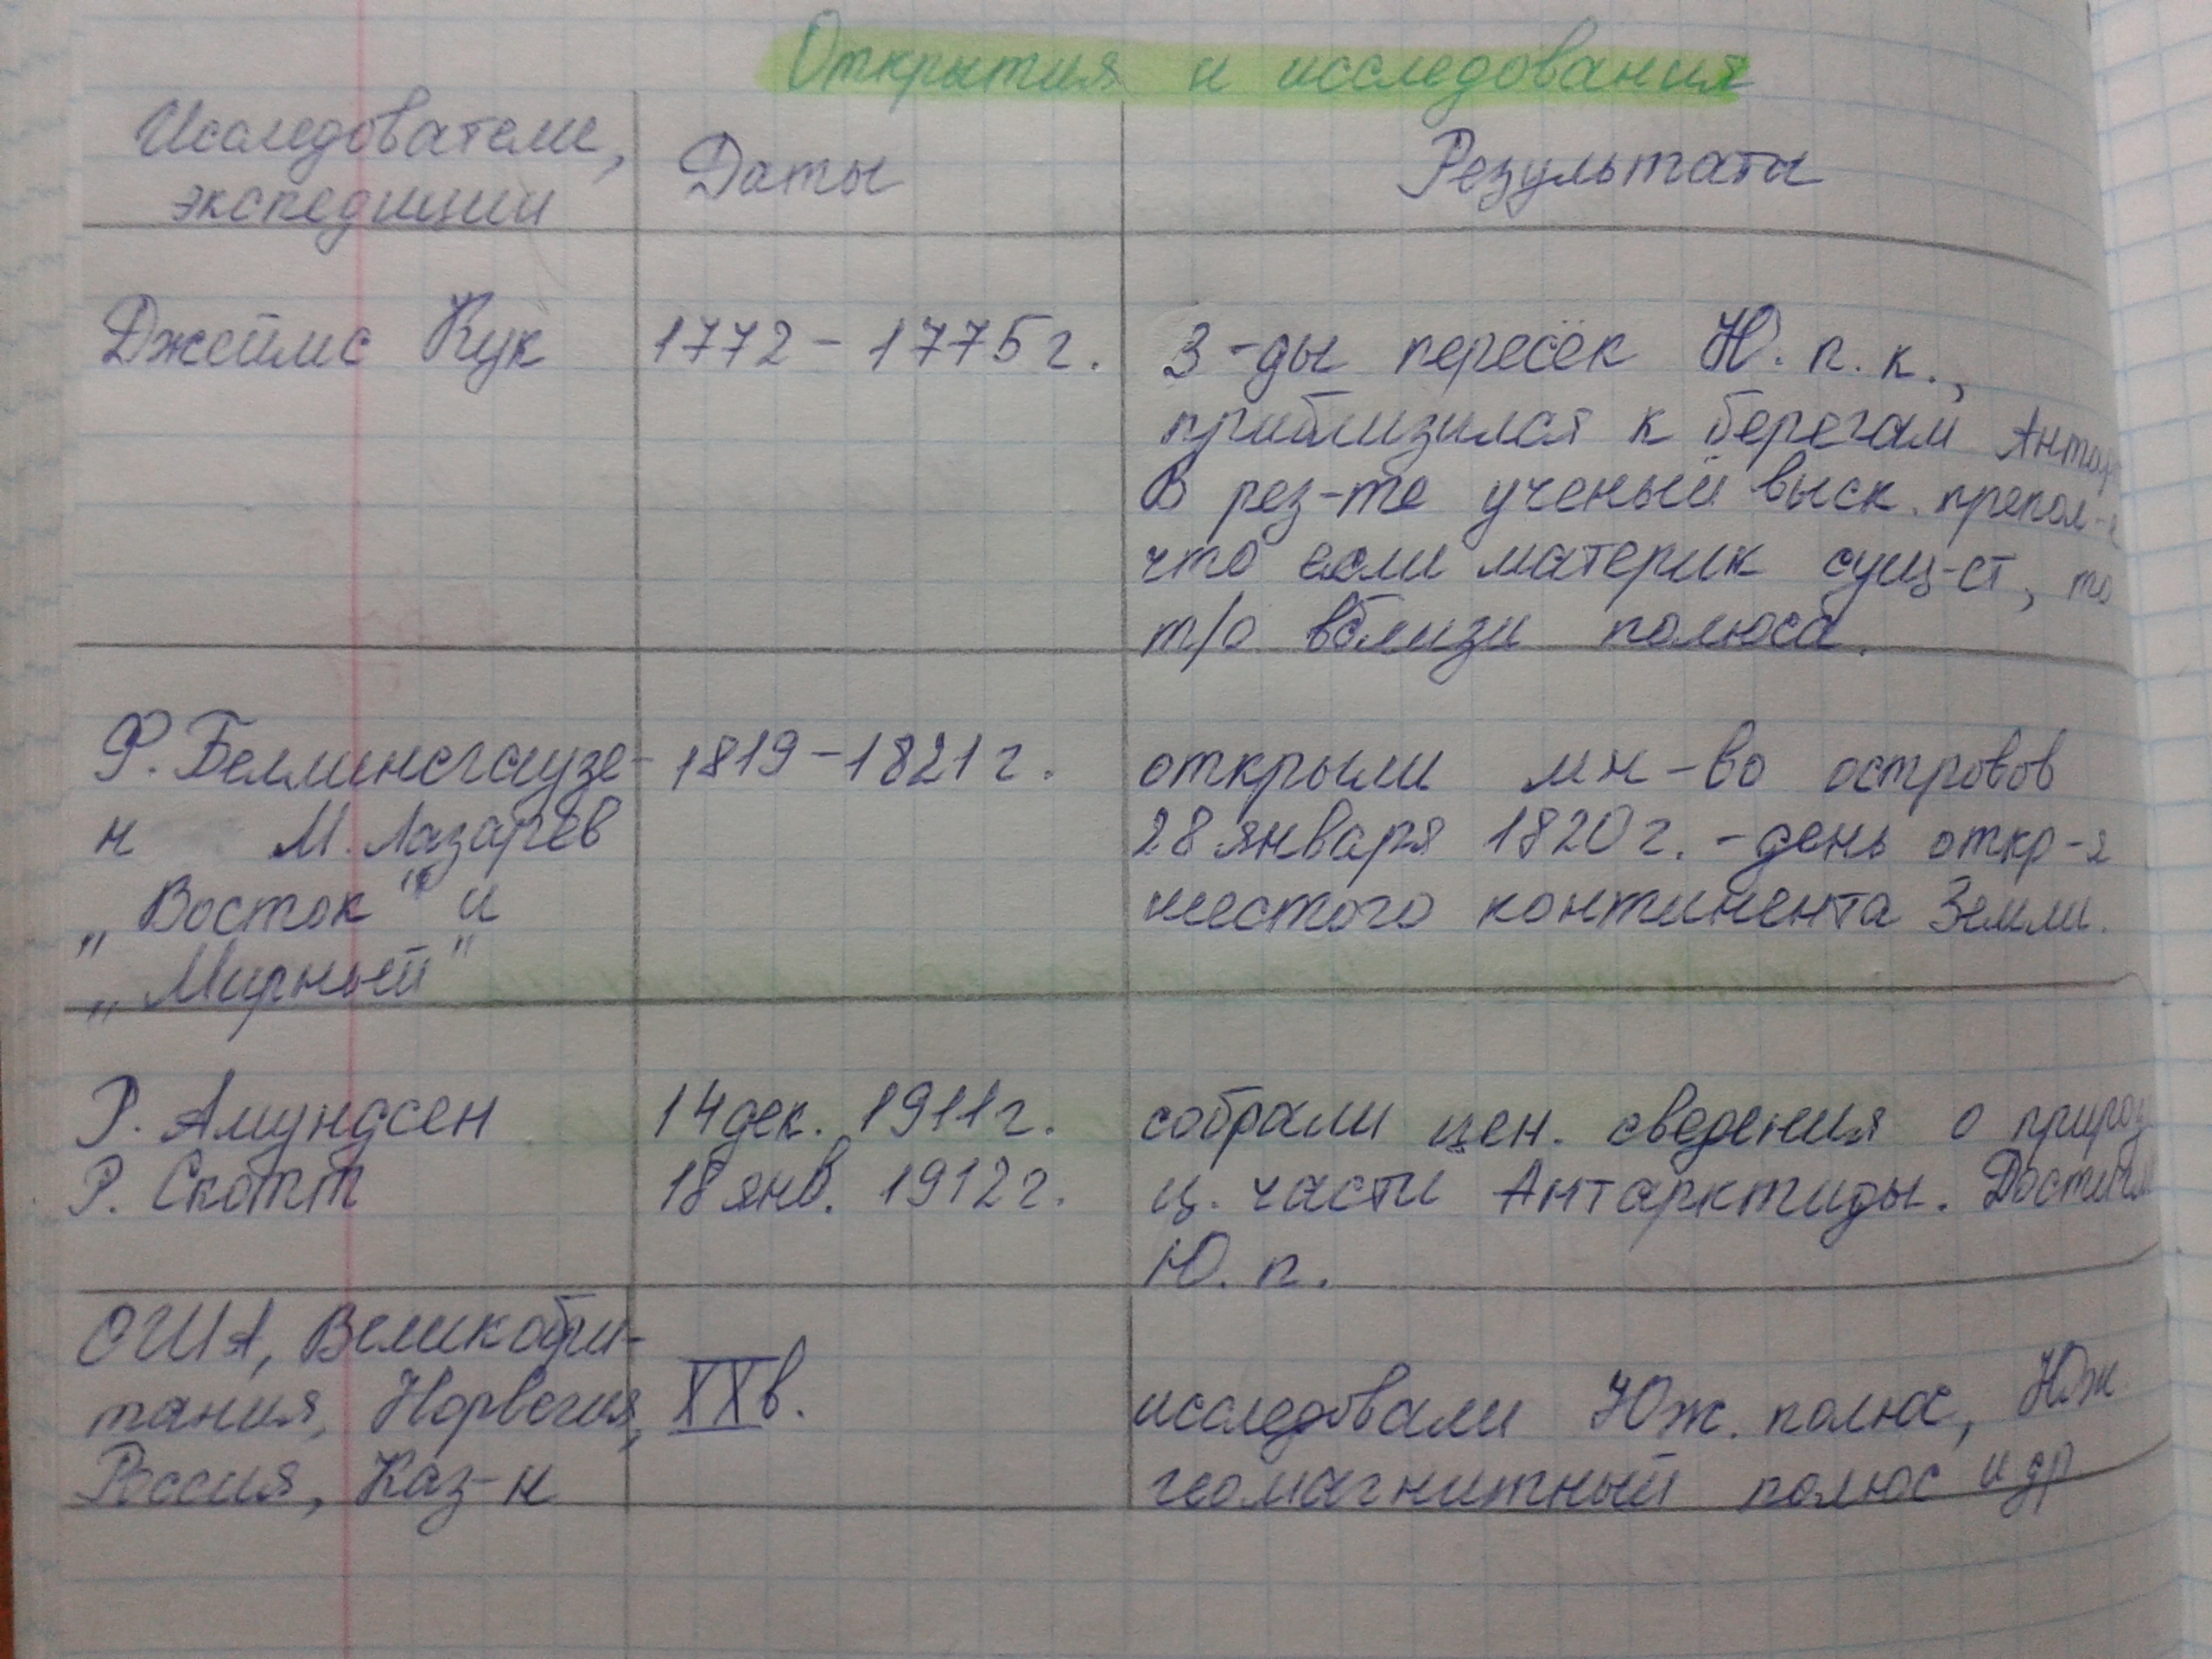 Открытия и исследования
Исследователи,
экспедиции
Даты
Результаты
Джеймс Кук
1772 - 1775 г.
3-ды пересёк Ю. п. к.,
приблизился к берегам Антар
В рез-те ученый выск. препол-
что если материк сущ-ст, то
т/о вблизи полюса.
Ф. Беллинсгаузе-
н М. Лазарев
„Восток" и
„Мирный"
1819 - 1821 г.
открыли мн-во островов
28 января 1820 г. - день откр-я
шестого континента Земли.
Р. Амундсен
Р. Скотт
14 дек. 1911 г.
18 янв. 1912 г.
собрали цен. сведения о природ
ц. части Антарктиды. Достигли
Ю. п.
США, Великобри-
тания, Норвегия,
Россия, Каз-н
XX в.
исследовали Юж. полюс, Юж.
геомагнитный полюс и др